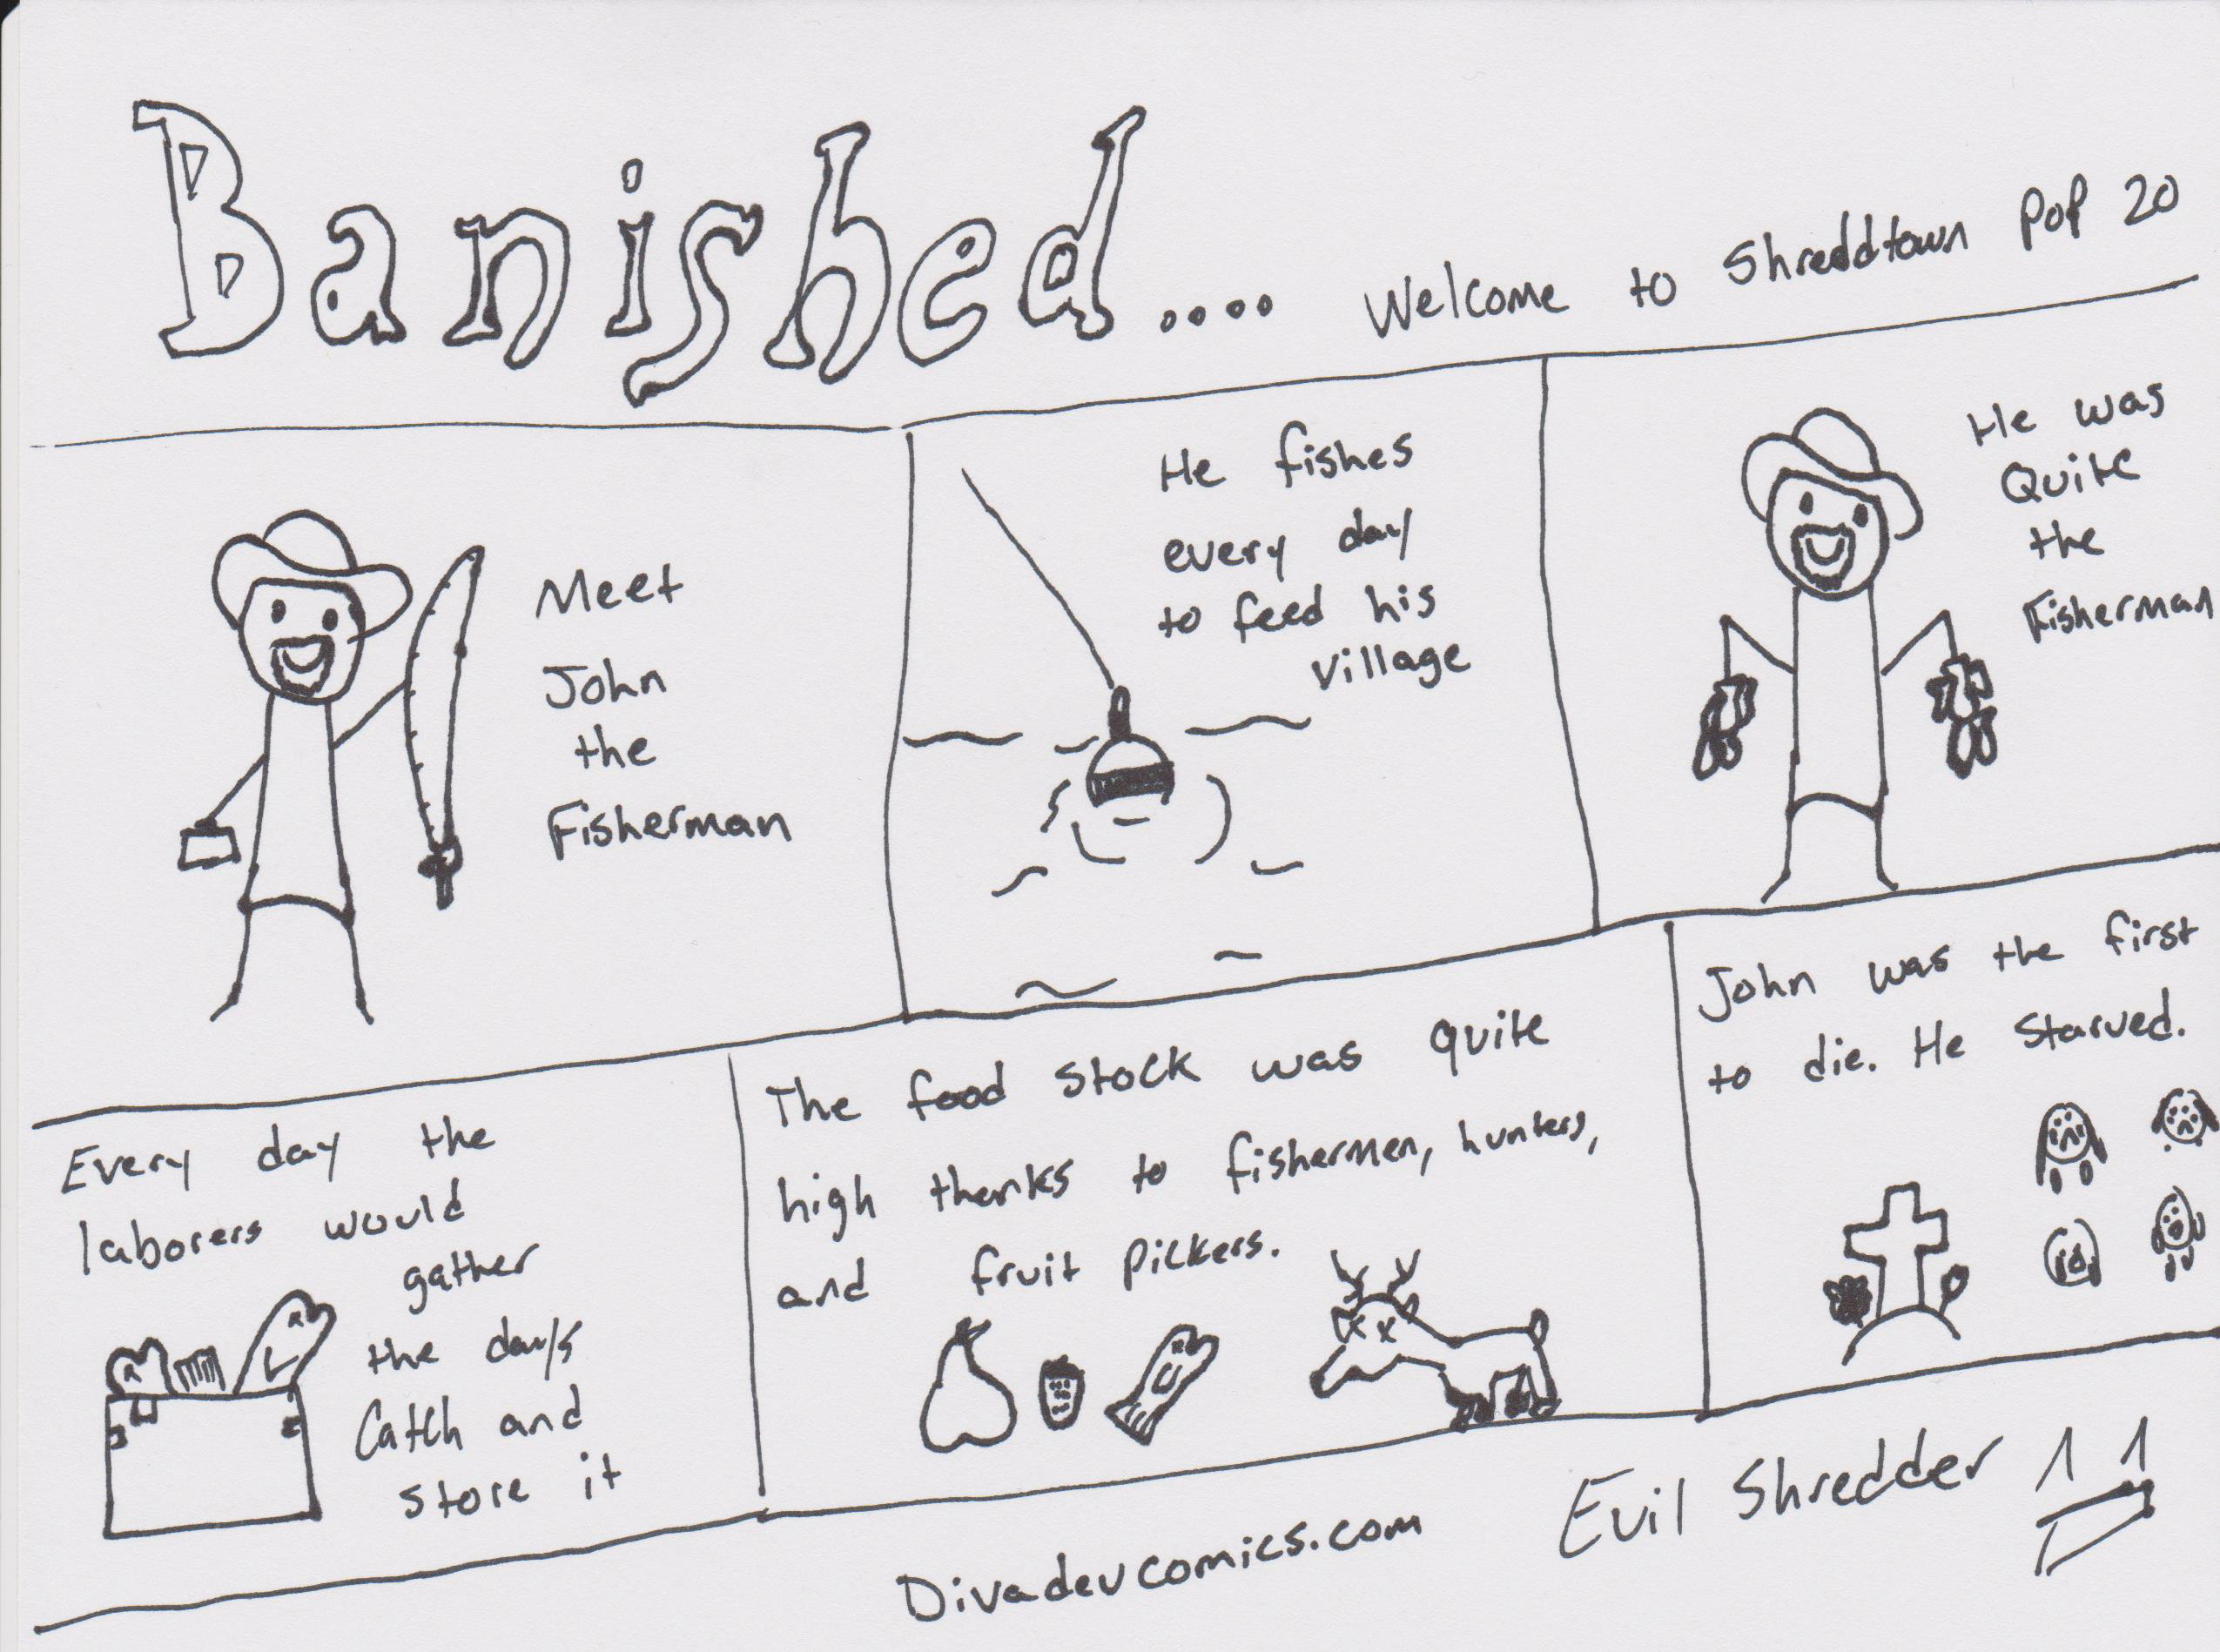 Banished.... Welcome to Shreddtown Pop 20
Meet
John
the
Fisherman
He fishes
every day
to feed his
village
He was
Quite
the
Fisherman
Every day the
laborers would
gather
the day's
Catch and
store it
The food stock was quite
high thanks to fishermen, hunters,
and fruit pickers.
John was the first
to die. He starved.
Divadevcomics.com
Evil Shredder